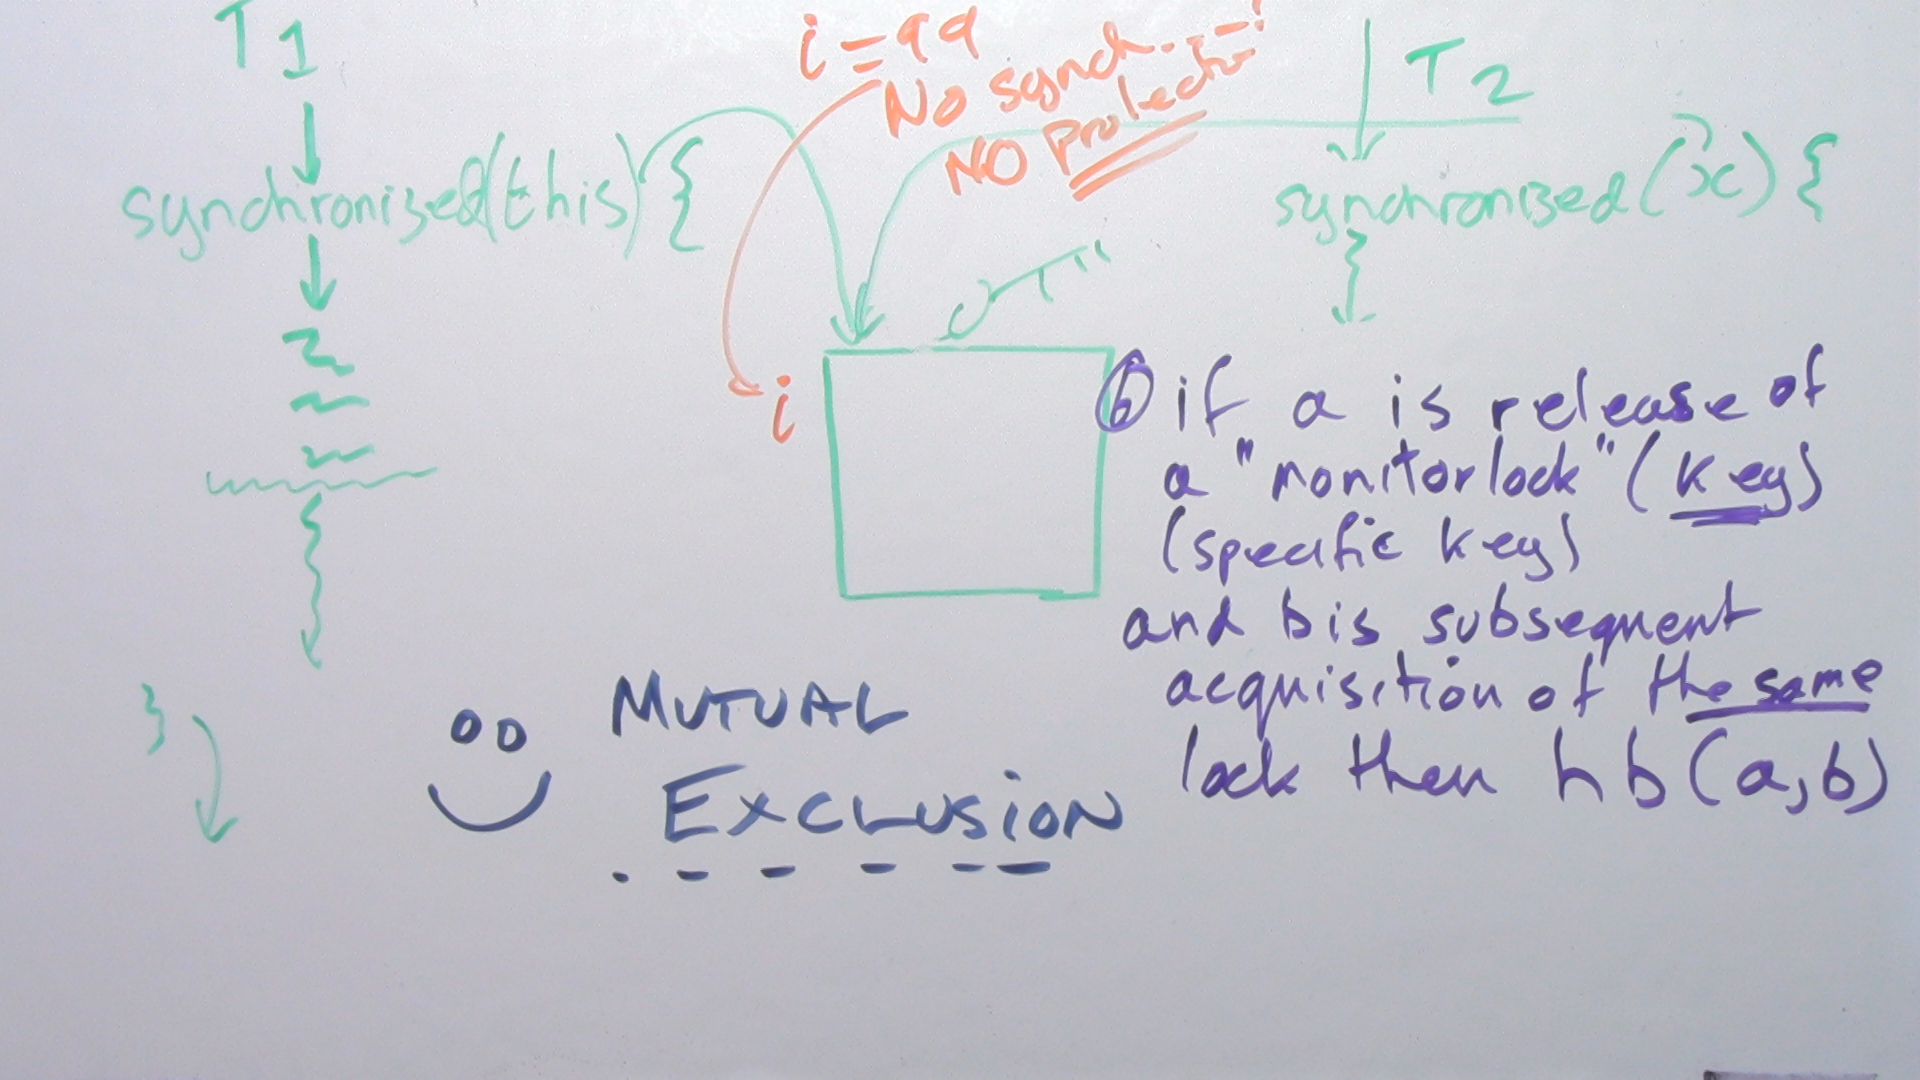 T1
i = 99
No synch...!
NO Protectn
T2
synchronized(this) {
synchronized(x) {
i
6 if a is release of
a "monitor lock" (key)
(specific key)
and b is subsequent
acquisition of the same
lock then hb(a,b)
}
MUTUAL
EXCLUSION